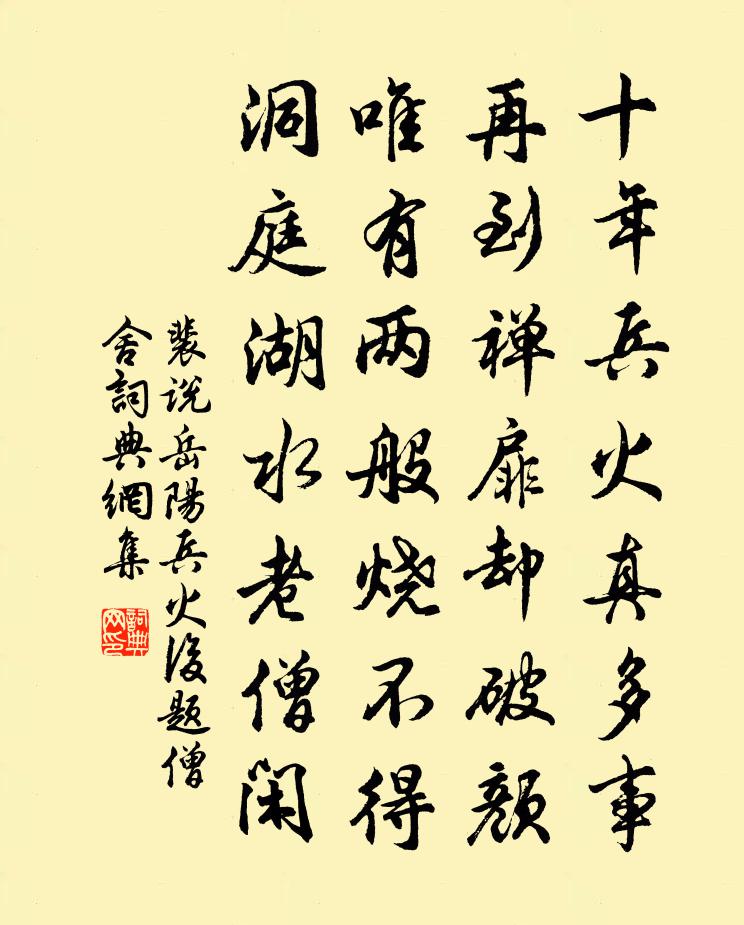 十年兵火真多事
再到禅扉却破颜
唯有两般烧不得
洞庭湖水老僧闲
裴说岳陽兵火後题僧
舍詞典網集
詞典
网印